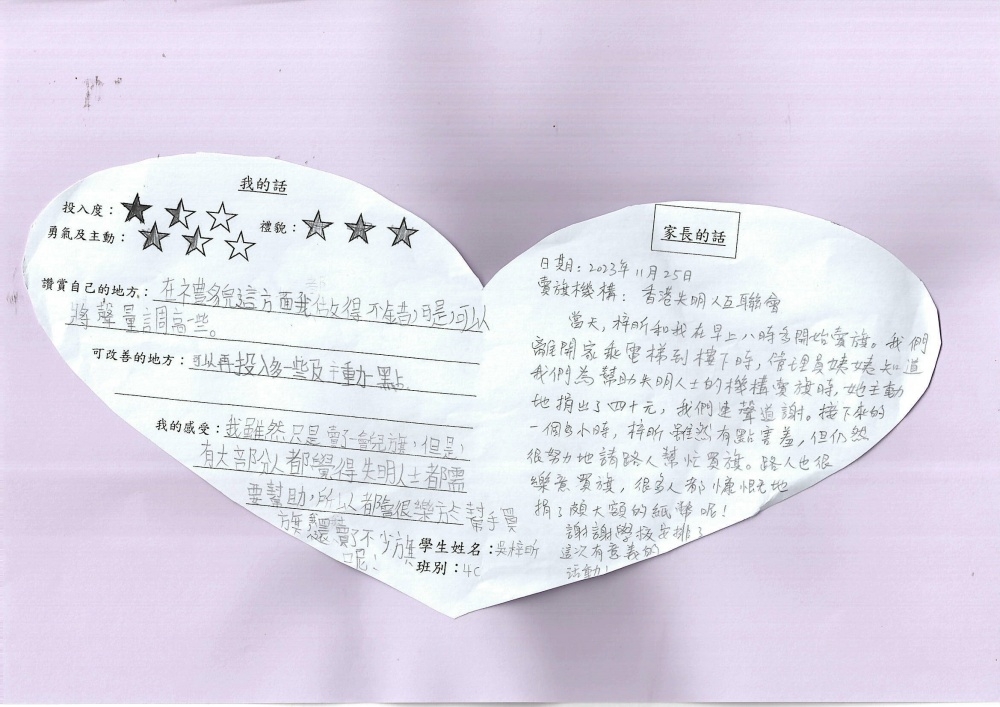 我的話
投入度：★★☆
禮貌：★★★
勇氣及主動：★★☆
讚賞自己的地方：在禮貌這方面我做得不錯，可是，可以
將聲量調高一些。
可改善的地方：可以再投入多一些及主動一點
我的感受：我雖然只是賣了一會兒旗，但是，
有大部分人都覺得失明人士都需
要幫助，所以都會很樂於幫手買
旗，還賣了不少旗
呢！
學生姓名：吳梓昕
班別：4C
家長的話
日期：2023年11月25日
賣旗機構：香港失明人互聯會
當天，梓昕和我在早上八時多開始賣旗。我們
離開家乘電梯到樓下時，管理員姨姨知道
我們為幫助失明人士的機構賣旗時，她主動
地捐出了四十元，我們連聲道謝。接下來的
一個多小時，梓昕雖然有點害羞，但仍然
很努力地請路人幫忙買旗。路人也很
樂意買旗，很多人都慷慨地
捐了頗大額的紙幣呢！
謝謝學校安排了
這次有意義的
活動！